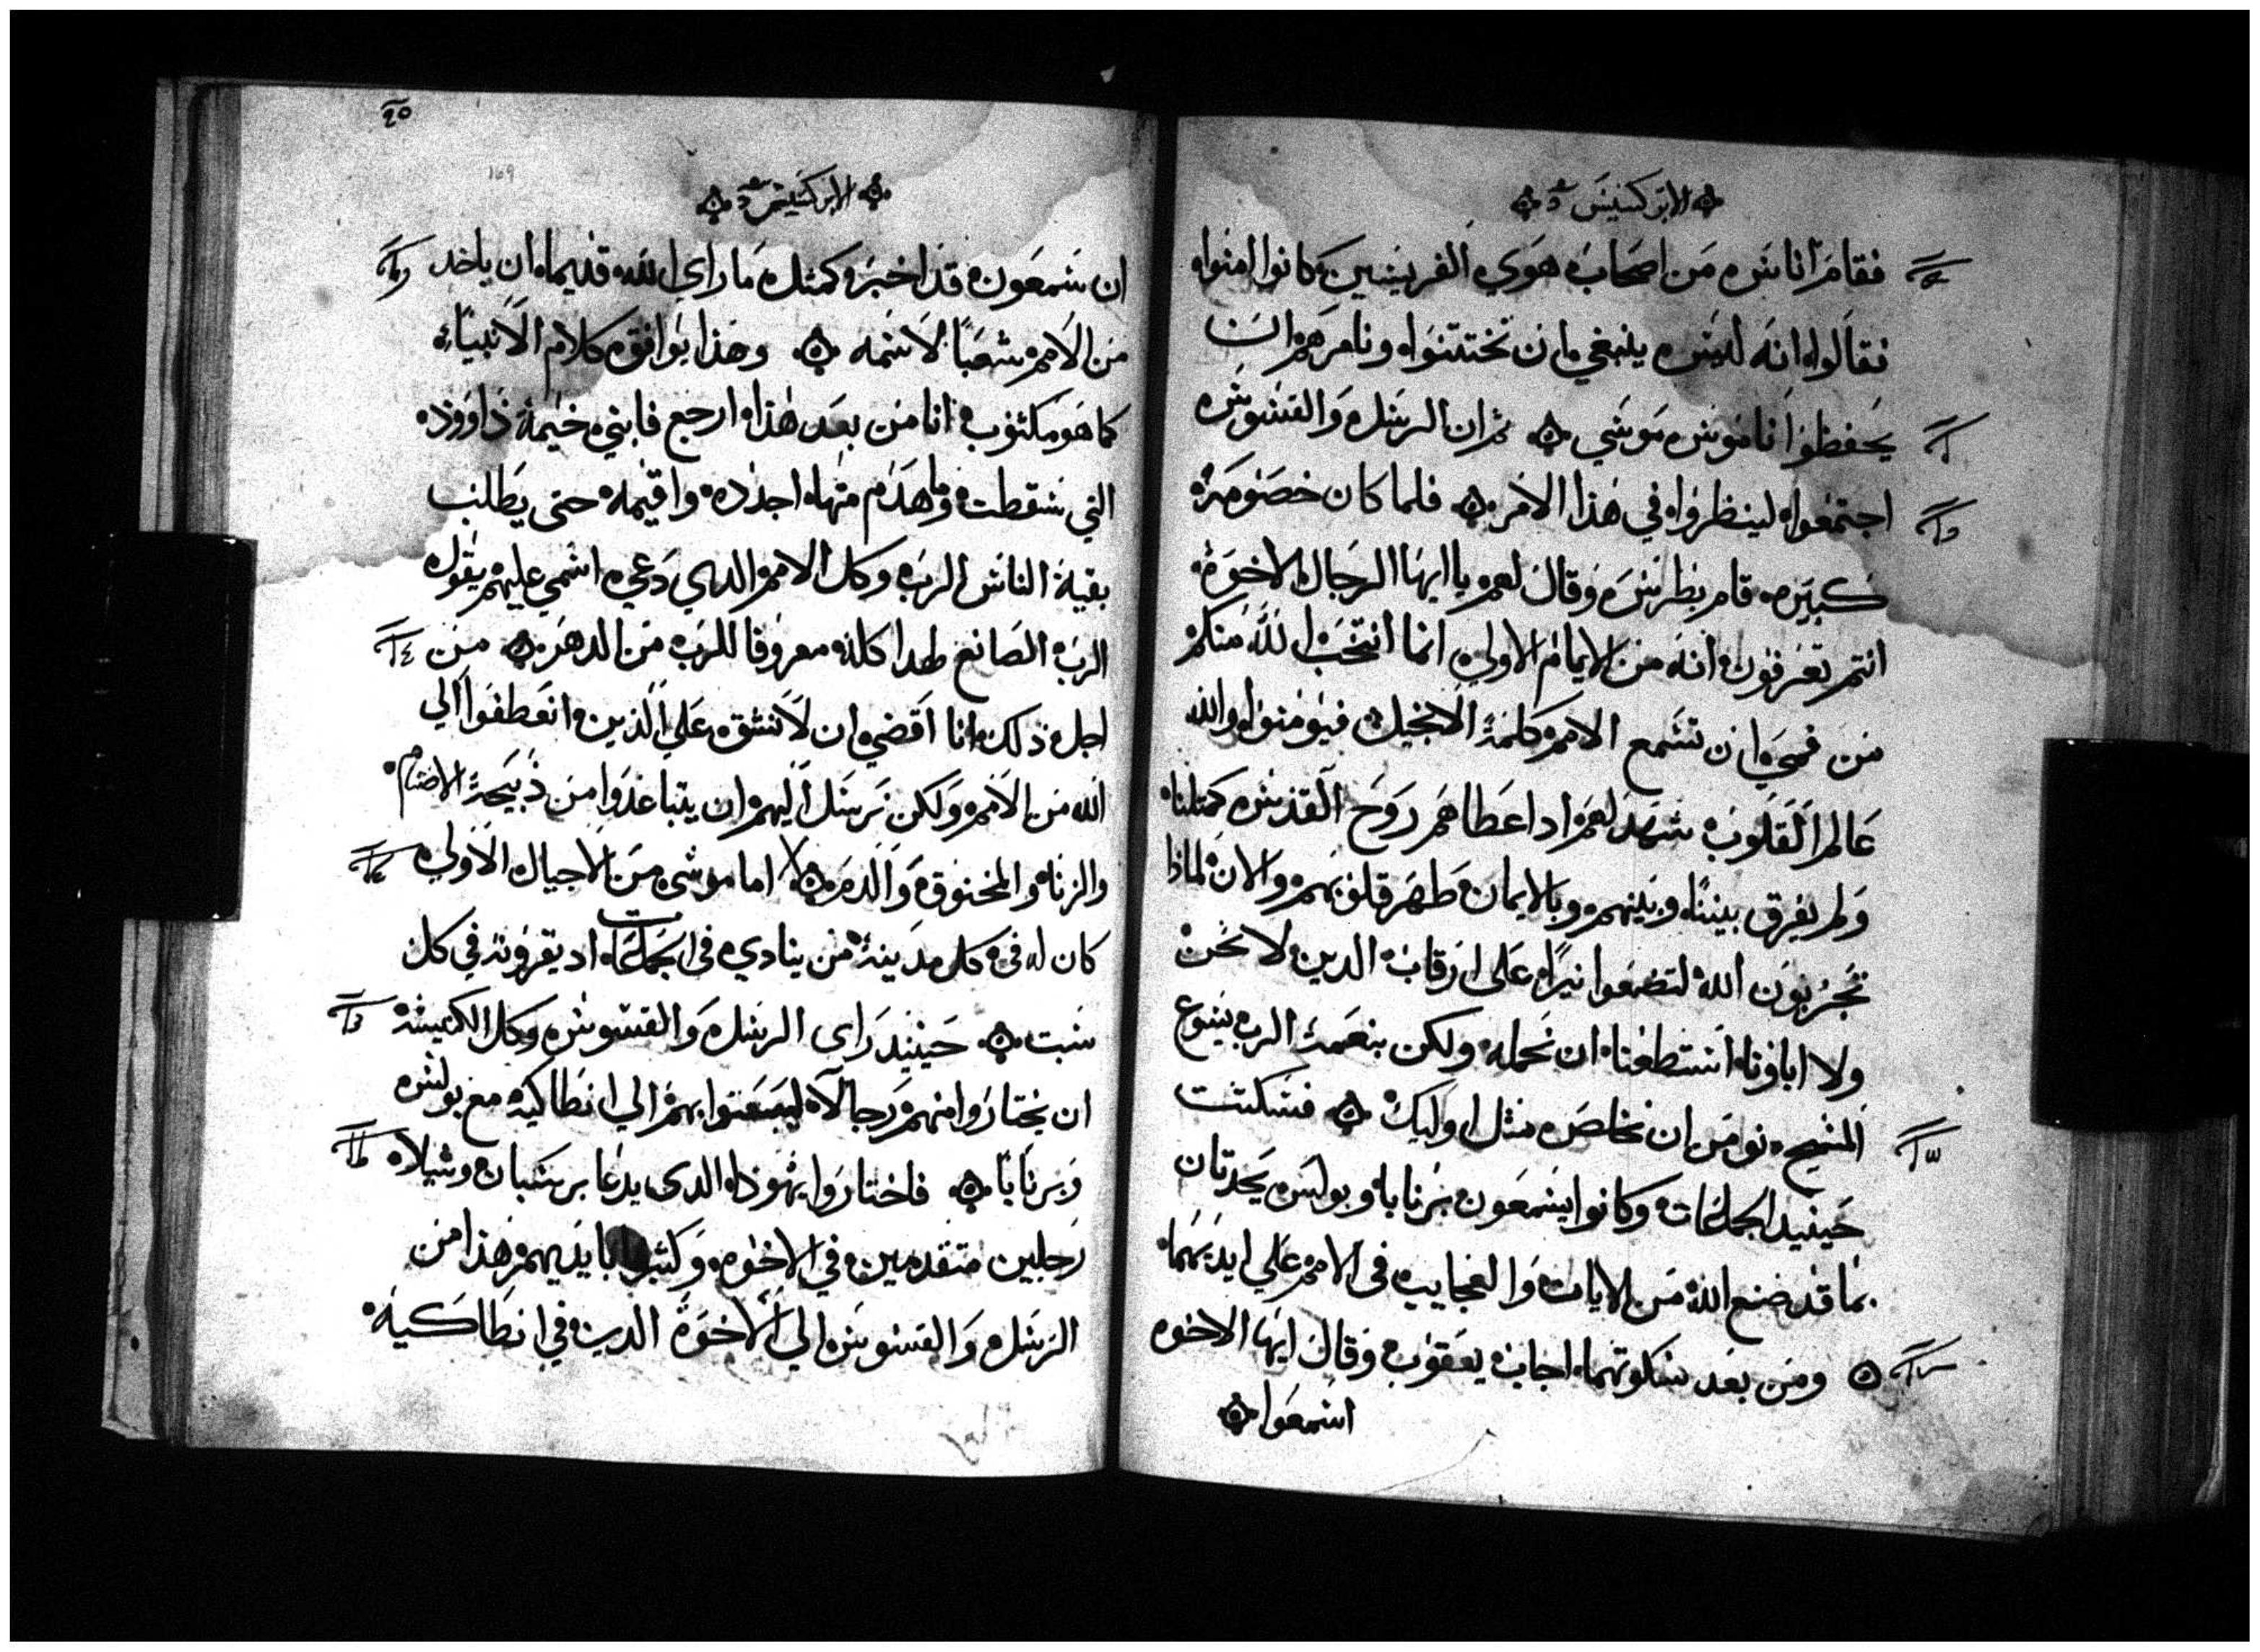 الابركسيس
فقام اناس من اصحاب هوي الفريسين كانوا امنوا
فقالوا انه ليس ينبغي ان تختتنوا ونامرهم ان
يحفظوا ناموس موسي ثم ان الرسل والقسوس
اجتمعوا لينظروا في هذا الامر فلما كان خصومة
كبيره قام بطرس وقال لهم يا ايها الرجال الاخوة
انتم تعرفون انه من الايام الاولي انما انتخب الله منكم
من فمي ان تسمع الامم كلمة الانجيل فيومنوا والله
عالم القلوب شهد لهم اد اعطاهم روح القدس كمثلنا
ولم يفرق بيننا وبينهم وبالايمان طهر قلوبهم والان لماذا
تجربون الله لتضعوا نيرا على ارقاب الدين لا نحن
ولا اباونا استطعنا ان نحمله ولكن بنعمة الرب يسوع
المسيح نومن ان نخلص مثل اوليك فسكتت
حينيد الجماعات وكانوا يسمعون برنابا وبولس يحدتان
بما قد صنع الله من الايات والعجايب في الامم علي ايديهما
ومن بعد سكوتهما اجاب يعقوب وقال ايها الاخوه
اسمعوا
٢٥
169
الابركسيس
ان سمعون قد اخبر كمثل ما راي الله قديما ان ياخد
من الامم شعبا لاسمه وهذا يوافق كلام الانبياء
كما هو مكتوب انا من بعد هذا ارجع فابني خيمة داوود
التي سقطت وما هدم منها اجدده واقيمه حتى يطلب
بقية الناس الرب وكل الامم الدي دعي اسمي عليهم يقول
الرب الصانع هدا كله معروفا للرب من الدهر من
اجل ذلك انا اقضي ان لا نشق علي الذين انعطفوا الي
الله من الامم ولكن نرسل اليهم ان يتباعدوا من ذبيحة الاصنام
والزنا والمخنوق والدم اما موسى من الاجيال الاولي
كان له في كل مدينة من ينادي في الجماعات اد يقرونه في كل
سبت حينيد راى الرسل والقسوس وكل الكنيسة
ان يختاروا منهم رجالا ليبعتوا بهم الي انطاكيه مع بولس
وبرنابا فاختاروا يهودا الدى يدعا برسبان وشيلا
رجلين متقدمين في الاخوه وكتبوا بايديهم هذا من
الرسل والقسوس الي الاخوة الدين في انطاكية